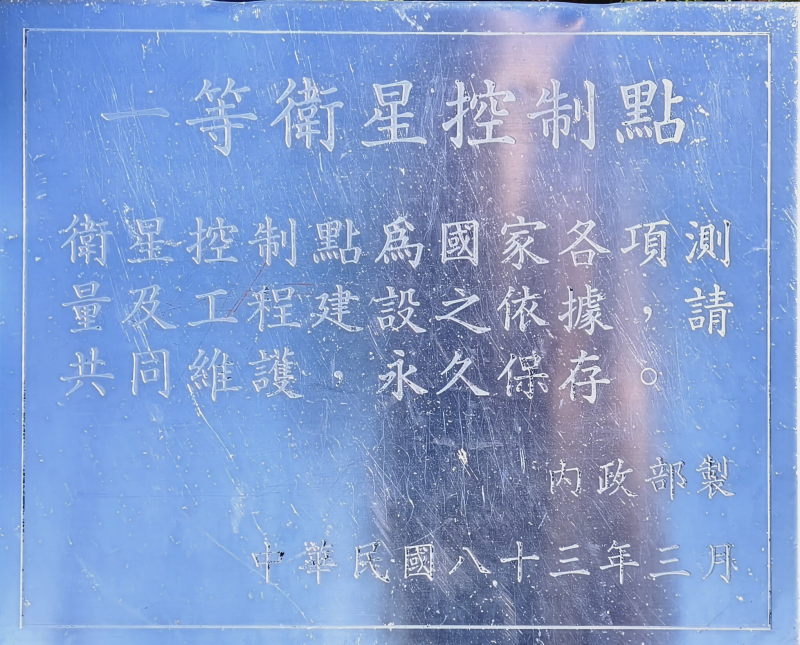 一等衛星控制點
衛星控制點爲國家各項測
量及工程建設之依據，請
共同維護，永久保存。
內政部製
中華民國八十三年三月